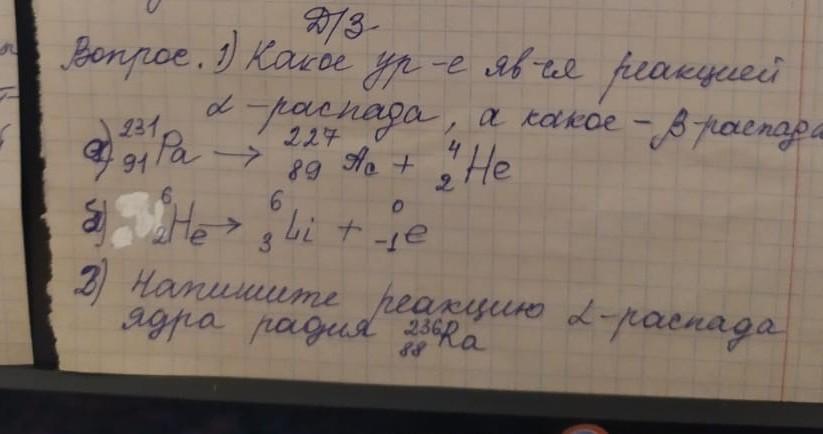 Д/З
Вопрос. 1) Какое ур-е яв-ся реакцией
α-распада, а какое - β-распада
а) ²³¹₉₁Pa → ²²⁷₈₉Ac + ⁴₂He
б) ⁶₂He → ⁶₃Li + ⁰₋₁e
2) Напишите реакцию α-распада
ядра радия ²³⁶₈₈Ra